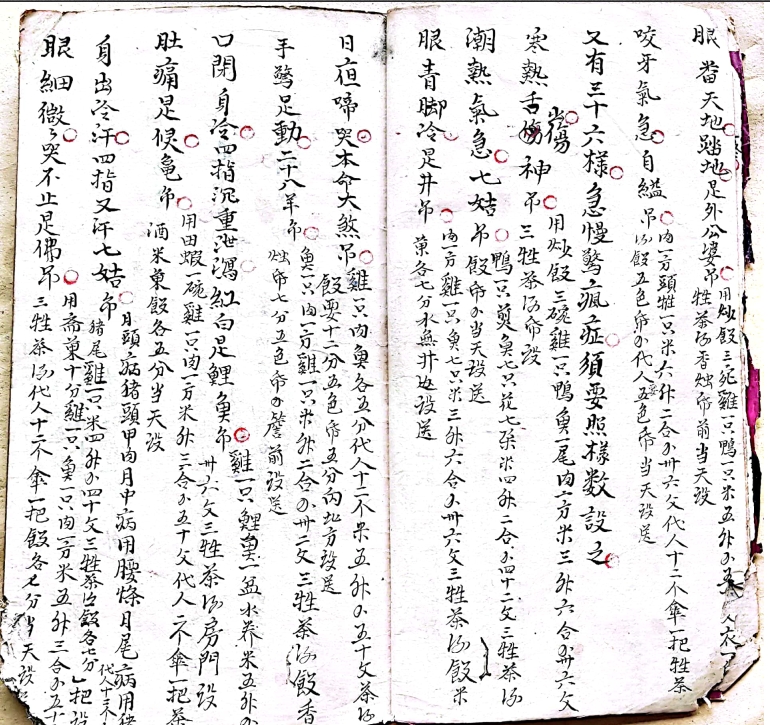 眼番天地踏地是外公婆吊 用炒飯三宛雞一只鴨一只米五升
牲茶酒香燭帋前当天設
咬牙氣急自縊吊 肉一方頭牲一只米六升二合卅六文代人十二个傘一把牲茶
酒飯五色帋代人五色帋当天設送
又有三十六樣急慢驚瘋症須要照樣數設之
傷 用炒飯三碗雞一只鴨魚一尾肉一方米三升六合卅六文
寒熱舌傷神吊 三牲茶酒帋設
潮熱氣急七姑吊 鴨一只煎魚七只花七朶米四升二合四十二文三牲茶酒
飯帋当天設送
眼青脚冷是井吊 肉一方雞一只魚七只米三升六合卅六文三牲茶酒飯米
菓各七分水無井边設送
日夜啼哭本命大煞吊 雞一只肉魚各五分代人十二个米五升五十文茶酒
飯要十二分五色帋五分向北方設送
手驚足動二十八羊吊 魚一只肉一方雞一只米升二合卅二文三牲茶酒飯香
燭帋七分五色帋簷前設送
口閉身冷四指沉重泄瀉紅白是鯉魚吊 雞一只鯉魚一盆水养米五升
卅六文三牲茶酒房門設
肚痛是候亀吊 用田蝦一碗雞一只肉一方米升三合五十文代人二个傘一把茶
酒米菓飯各五分当天設
身出冷汗四指又汗七姑吊 月頭病猪頭甲肉月中病用腰條月尾病用猪
猪尾雞一只米四升四十文三牲茶酒飯各七分
眼細微々哭不止是佛吊 用斋菓十分雞一只魚一只肉一方米五升三合五十
三牲茶酒代人十二个傘一把飯各七分当天設